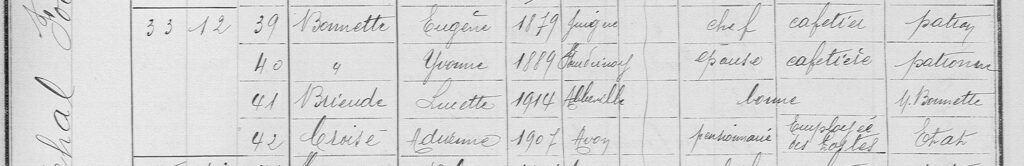 33 12 39 Bonnette Eugène 1879 Guigne chef cafetier patron
40 " Yvonne 1889 épouse cafetière patronne
41 Brieude Lucette 1914 Abbeville bonne M. Bonnette
42 Croisé Adrienne 1907 Avon pensionnaire Employée des Postes Etat